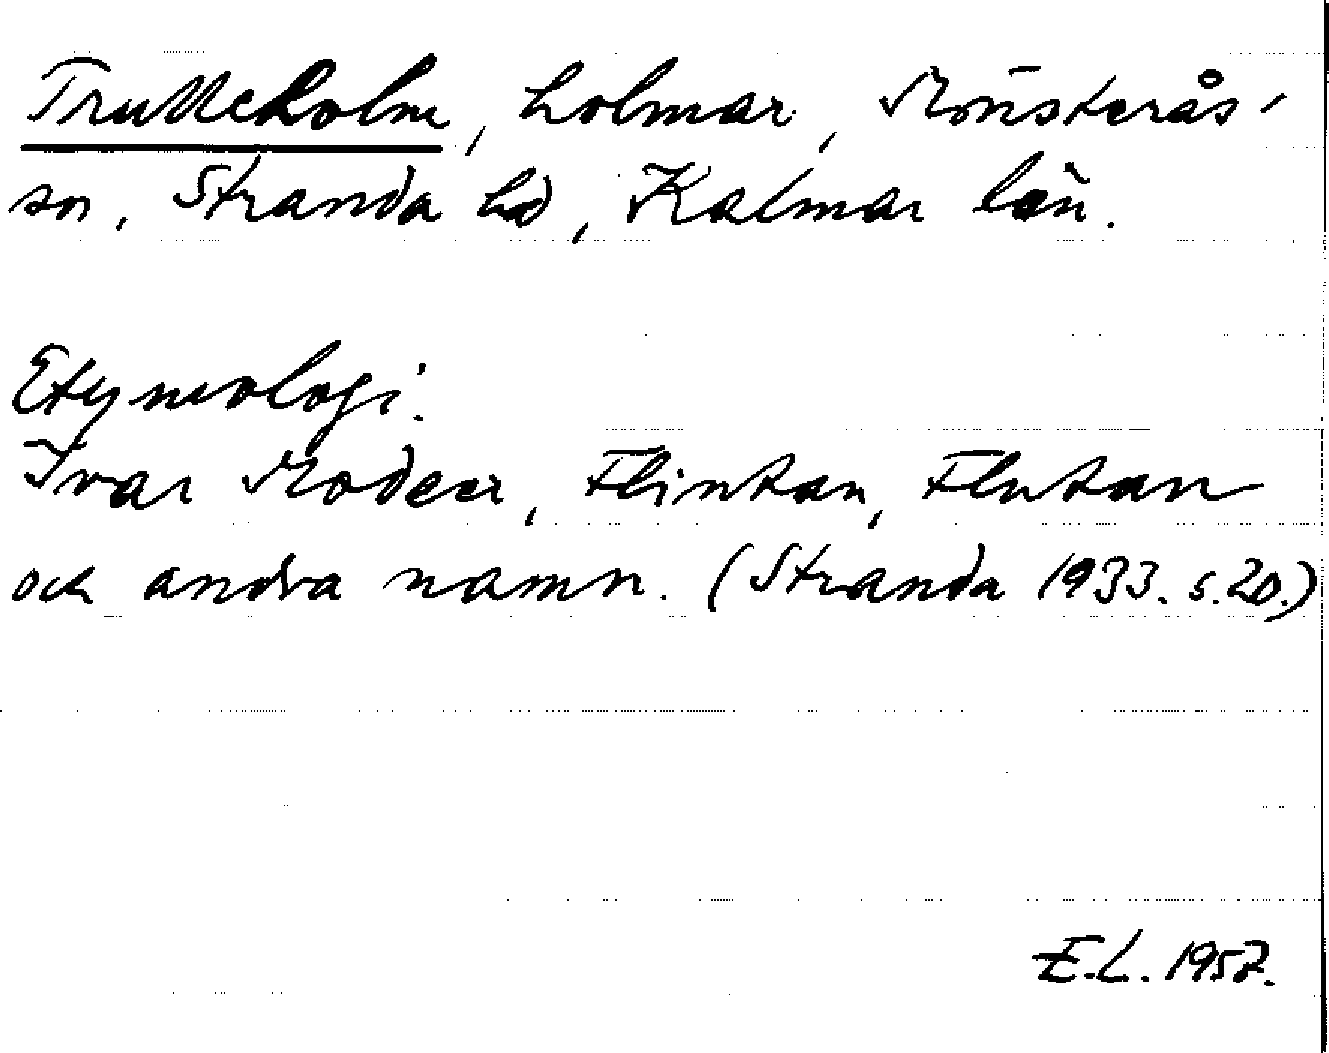 Trulleholm, holmar, Mönsterås-
sn, Stranda hd, Kalmar län.
Etymologi:
Ivar Modeer, Flintan, Flutan
och andra namn. (Stranda 1933. s. 20.)
E.L. 1957.